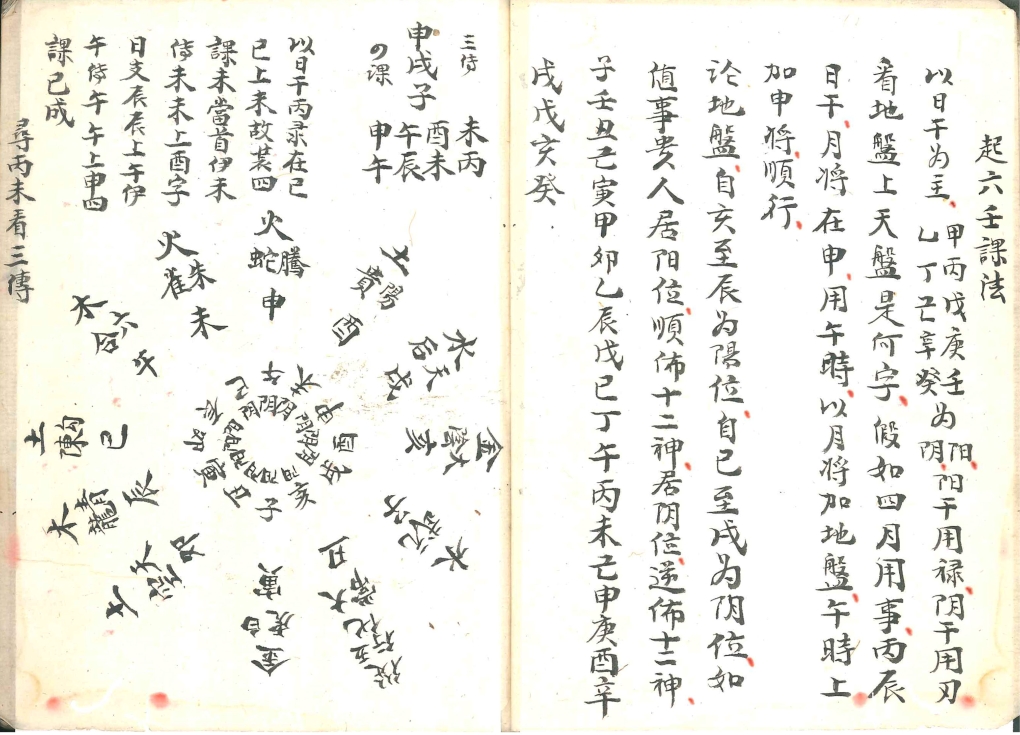 起六壬課法
以日干为主 甲丙戊庚壬为阳 乙丁己辛癸为阴 阳干用禄阴干用刃
看地盤上天盤是何字假如四月用事丙辰
日干月将在申用午時以月将加地盤午時上
加申将順行
论地盤自亥至辰为陽位自巳至戌为阴位如
值事貴人居阳位順佈十二神居阴位逆佈十二神
子壬丑己寅甲卯乙辰戊巳丁午丙未己申庚酉辛
戌戊亥癸
三传
申戌子
の课
未丙
酉未
午辰
申午
以日干丙录在巳
巳上未故装四
課未當首伊未
传未未上酉字
日支辰辰上午伊
午传午午上申四
課已成
尋丙未看三傳
火
騰蛇
申
土
陽貴
酉
水
天后
戌
金
太陰
亥
水
丑
金
白虎
寅
卯
木
青龍
辰
土
勾陳
巳
午
火
朱雀
未
午
未
申
酉
戌
亥
子
丑
寅
卯
辰
巳